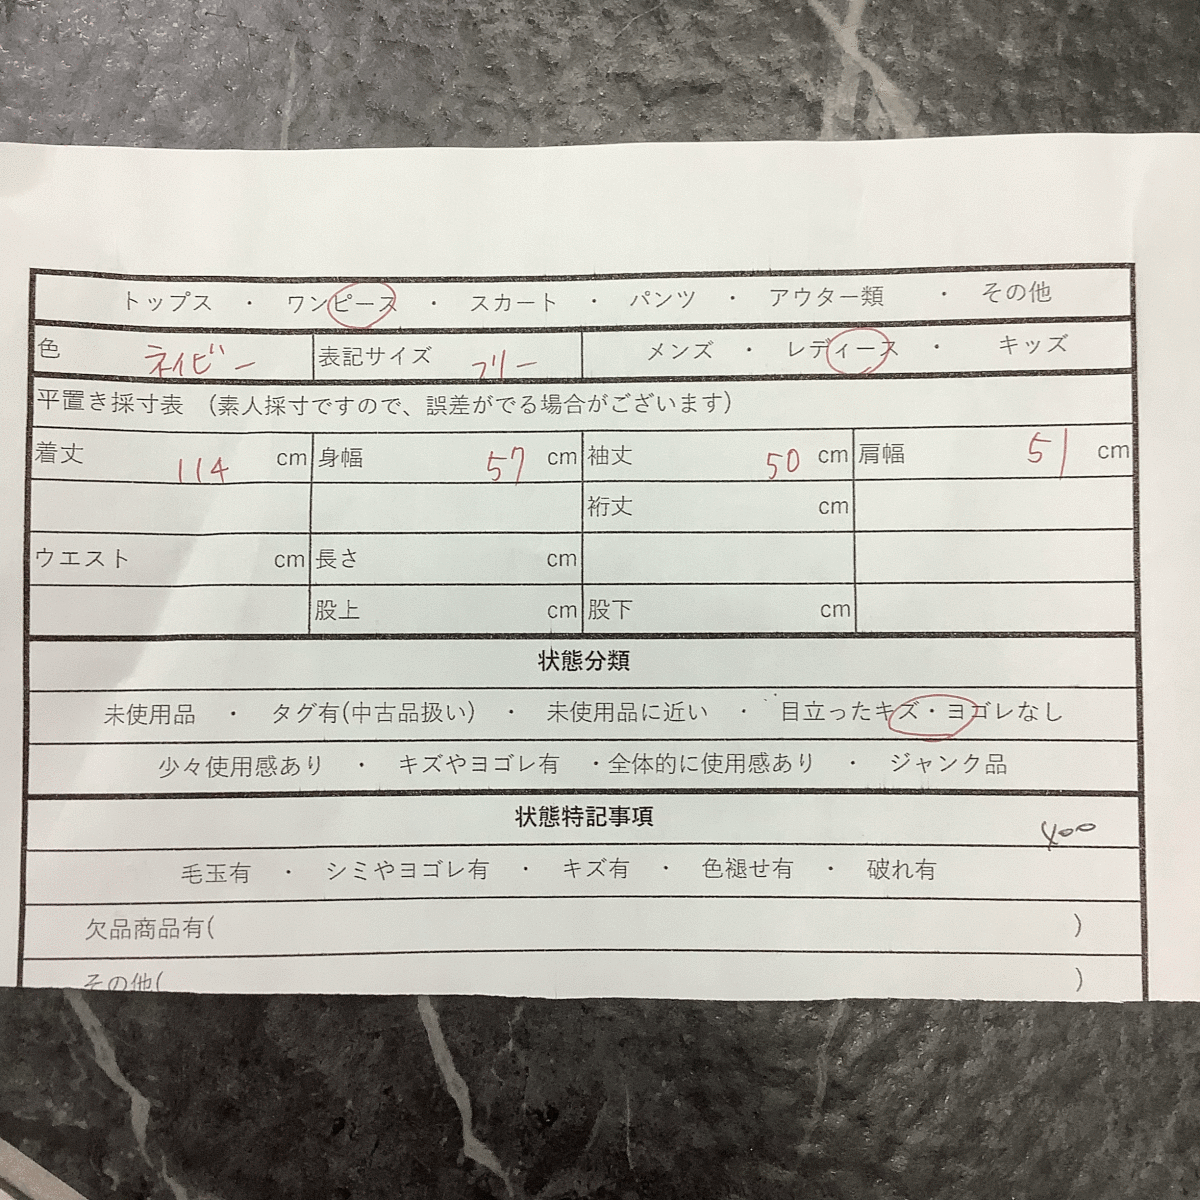 トップス ・ ワンピース ・ スカート ・ パンツ ・ アウター類 ・ その他
色 ネイビー 表記サイズ フリー メンズ ・ レディース ・ キッズ
平置き採寸表 (素人採寸ですので、誤差がでる場合がございます)
着丈 114 cm 身幅 57 cm 袖丈 50 cm 肩幅 51 cm
裄丈 cm
ウエスト cm 長さ cm
股上 cm 股下 cm
状態分類
未使用品 ・ タグ有(中古品扱い) ・ 未使用品に近い ・ 目立ったキズ・ヨゴレなし
少々使用感あり ・ キズやヨゴレ有 ・全体的に使用感あり ・ ジャンク品
状態特記事項 400
毛玉有 ・ シミやヨゴレ有 ・ キズ有 ・ 色褪せ有 ・ 破れ有
欠品商品有( )
その他( )